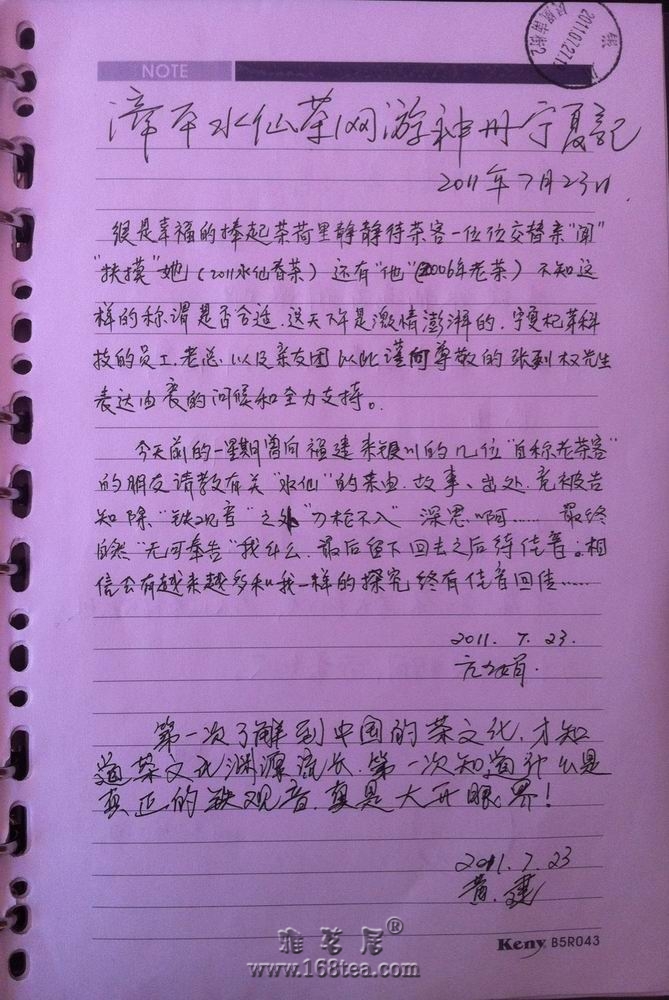 NOTE
漳平水仙茶网游神州宁夏記
2011年7月23日
很是幸福的捧起茶荷里静静待茶客一位位交替亲"闻"
"扶摸"她(2011水仙春茶)还有"他"(2006年老茶)不知这
样的称谓是否合适.这天下午是激情澎湃的.宁夏杞芽科
技的员工.老总.以及亲友团以此谨向尊敬的张利权先生
表达由衷的问候和全力支持。
今天前的一星期曾向福建来银川的几位"自称老茶客"
的朋友请教有关"水仙"的来由.故事、出处.竟被告
知除"铁观音"之外"刀枪不入"深思啊……最终
自然"无可奉告"我什么.最后留下回去之后待佳音。相
信会有越来越多和我一样的探究终有佳音回佳……
2011.7.23.
第一次了解到中国的茶文化,才知
道茶文化渊源流长.第一次知道什么是
真正的铁观音.真是大开眼界!
2011.7.23
黄.建
雅茗居®
www.168tea.com
Keny B5R043